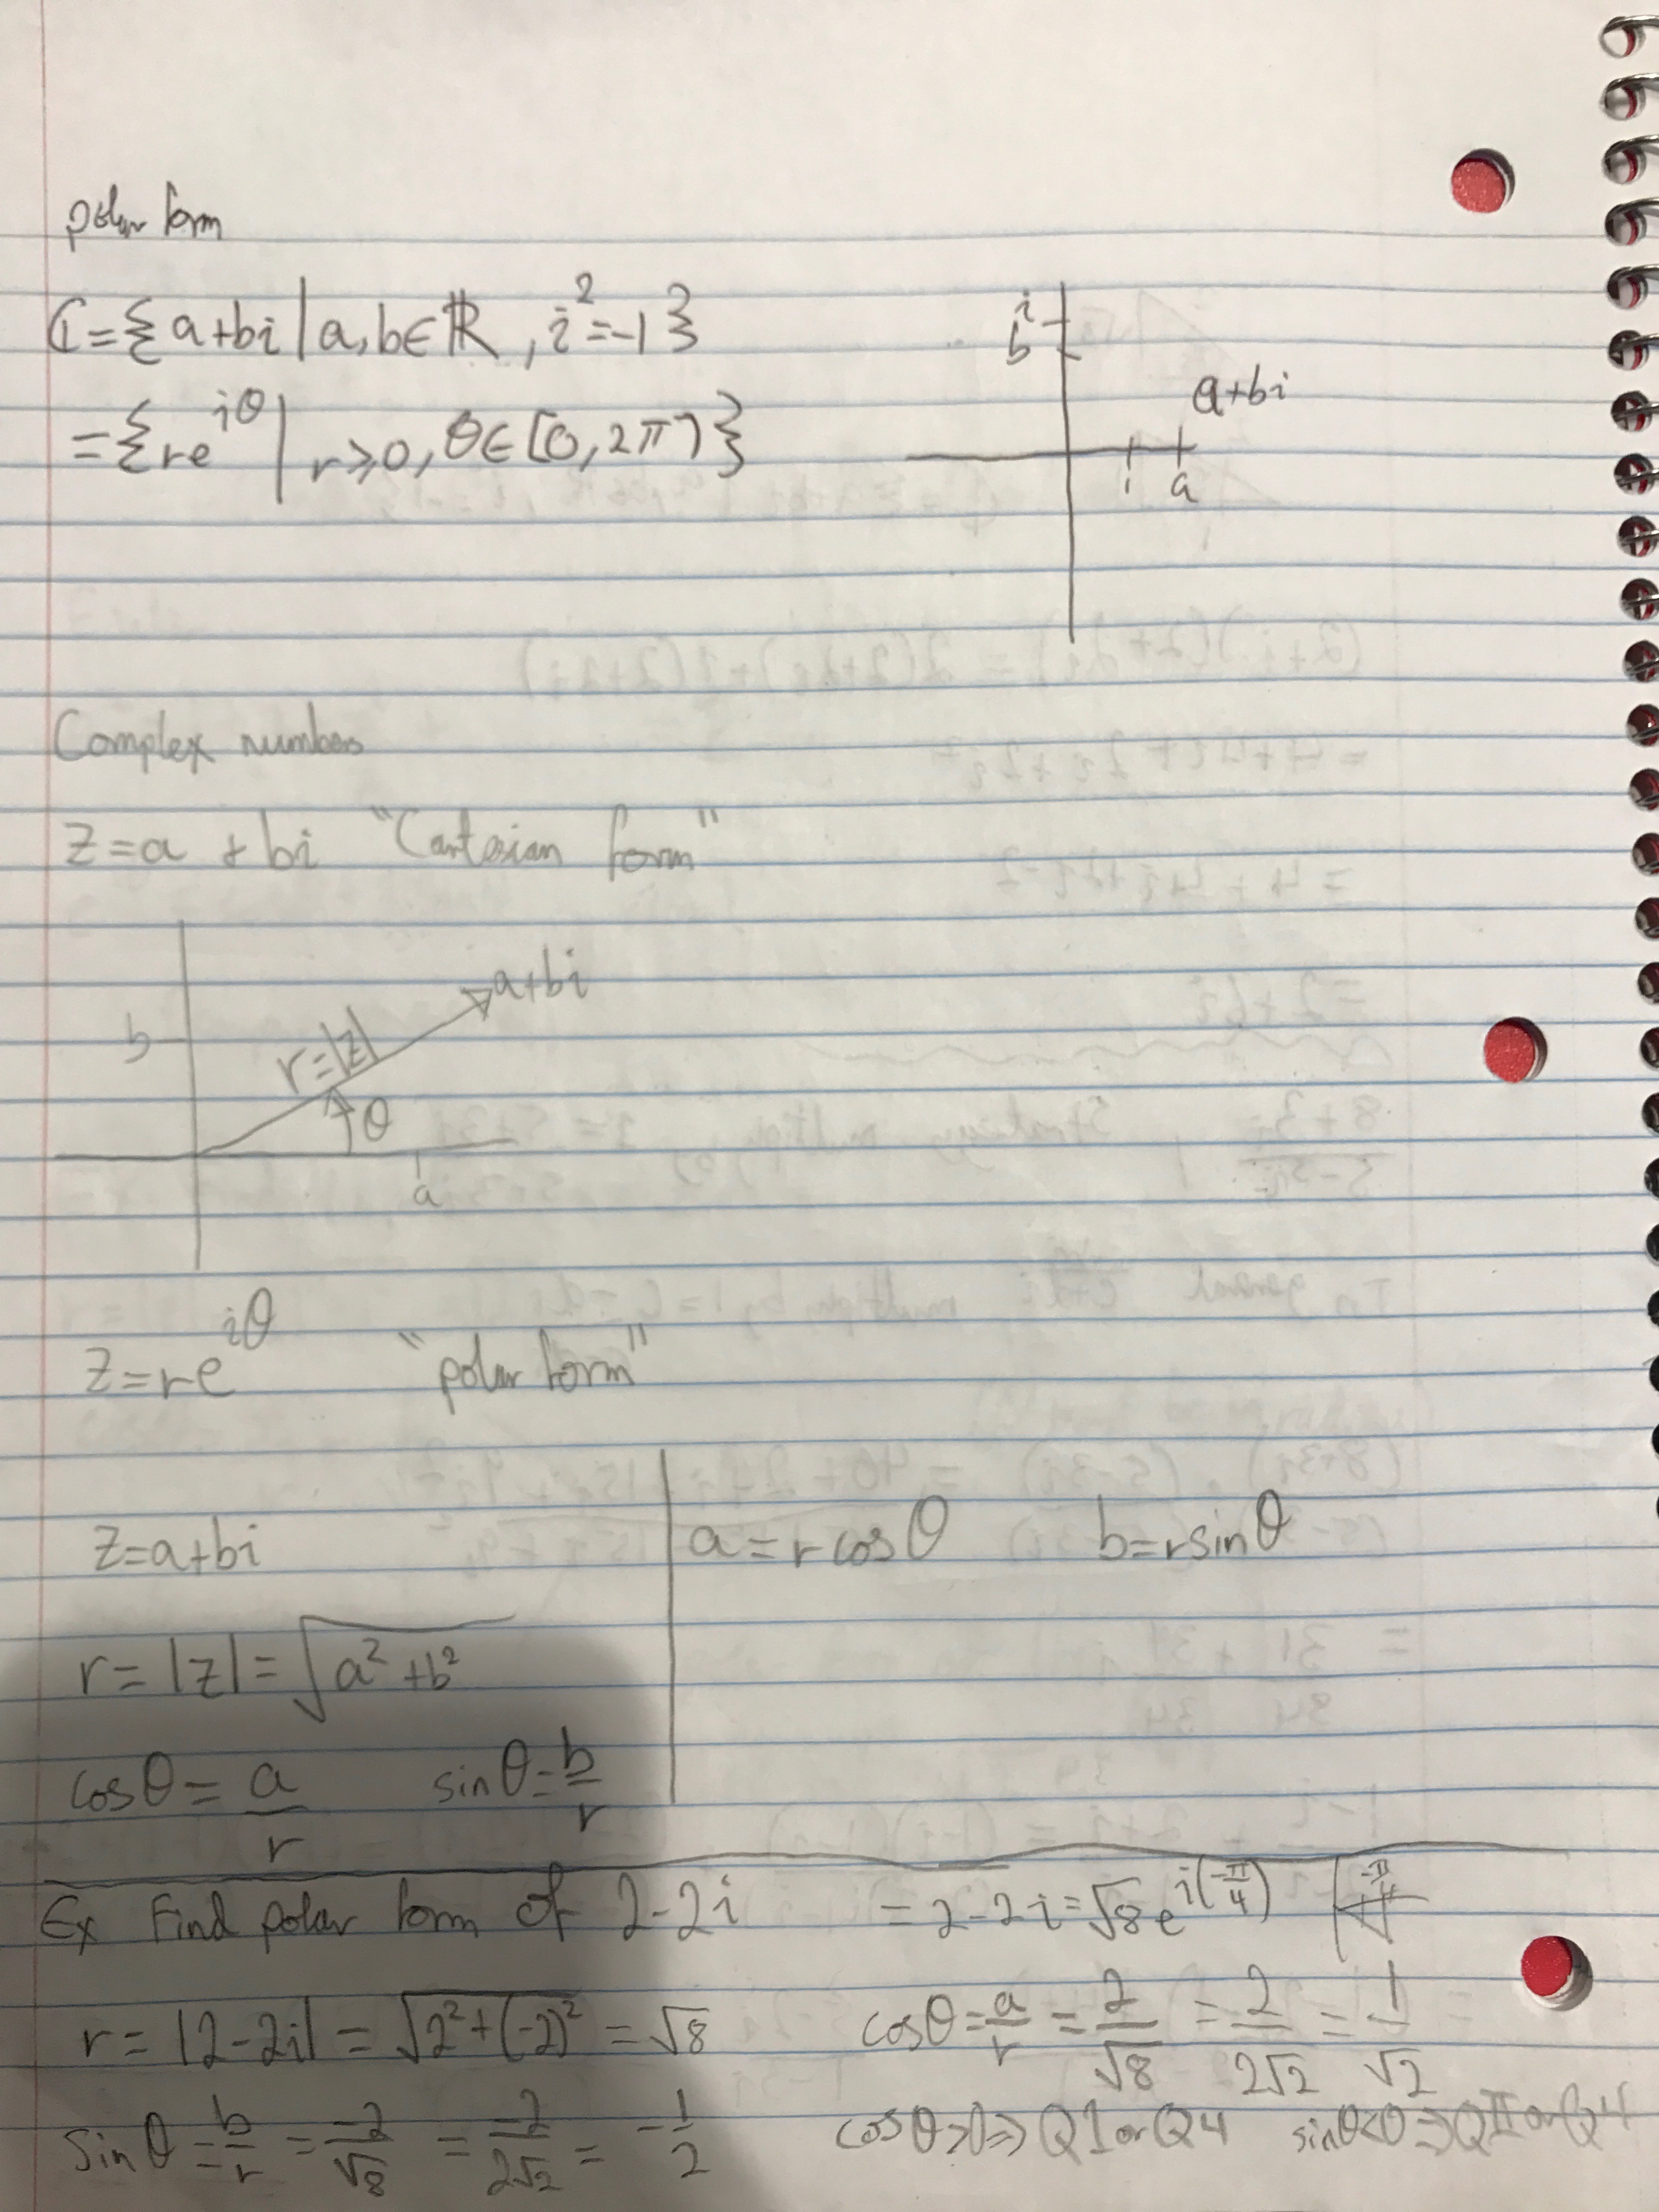 polar form
ℂ={a+bi|a,b∈ℝ, i²=-1}
={re^{iθ}|r≥0, θ∈[0,2π)}
i
b
a+bi
1
a
Complex numbers
z=a+bi "Cartesian form"
a+bi
b
r=|z|
θ
a
z=re^{iθ} "polar form"
z=a+bi
a=rcosθ b=rsinθ
r=|z|=√(a²+b²)
cosθ=a/r sinθ=b/r
Ex Find polar form of 2-2i =2-2i=√8e^{i(-π/4)} -π/4
r=|2-2i|=√(2²+(-2)²)=√8
cosθ=a/r=2/√8=2/2√2=1/√2
sinθ=b/r=-2/√8=-2/2√2=-1/2
cosθ>0⇒Q1orQ4 sinθ<0⇒QIIorQ4